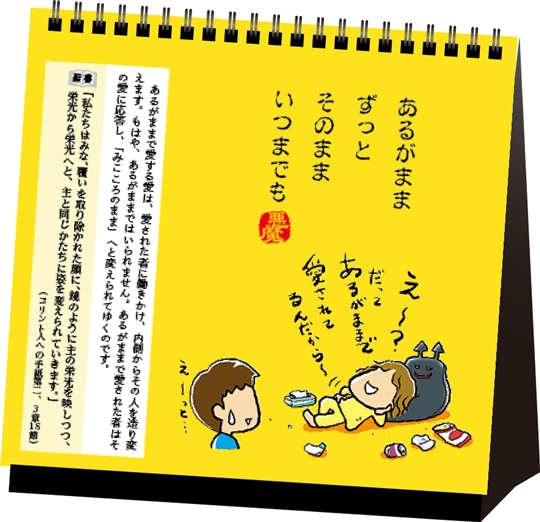 あるがまま
ずっと
そのまま
いつまでも
悪魔
え〜?
だって
あるがままで
愛されて
るんだから〜
え〜っと…
あるがままで愛する愛は、愛された者に働きかけ、内側からその人を造り変
えます。もはや、あるがままではいられません。あるがままで愛された者はそ
の愛に応答し、「みこころのまま」へと変えられてゆくのです。
聖書
「私たちはみな、覆いを取り除かれた顔に、鏡のように主の栄光を映しつつ、
栄光から栄光へと、主と同じかたちに姿を変えられていきます。」
(コリント人への手紙第二、3章18節)